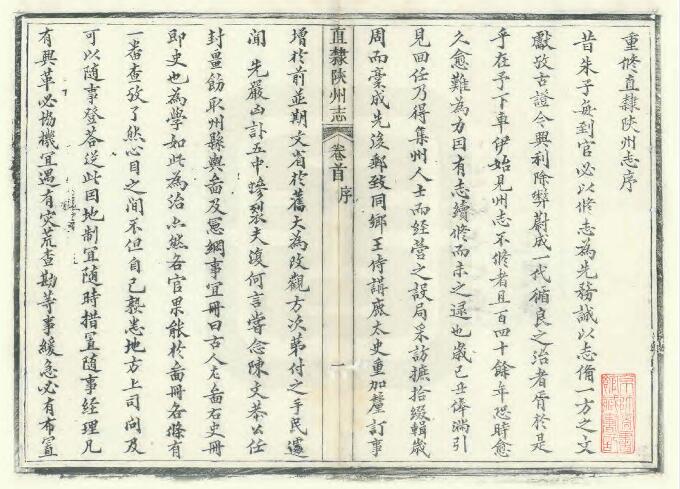 重修直隸陝州志序
昔朱子每到官必以修志為先務誠以志備一方之文
獻攷古證今興利除弊蔚成一代循良之治者胥於是
乎在予下車伊始見州志不修者且百四十餘年恐時愈
久愈難為力因有志續修而未之逮也歲己丑俸滿引
見回任乃得集州人士而經營之設局采訪摭拾綴輯歲
周而稾成先後郵致同鄉王侍講庶太史重加釐訂事
直隸陝州志
卷首
序
一
增於前並期文省於舊大為改觀方次第付之手民遽
聞先嚴凶訃五中慘裂夫復何言嘗念陳文恭公任
封疆飭取州縣輿畾及冕綱事宜冊曰古人左畾右史冊
即史也為學如此為治亦然各官果能於畾冊各條有
一番查攷了然心目之間不但自己熟悉地方上司問及
可以隨事登荅從此因地制宜隨時措置隨事經理凡
有興革必協機宜遇有災荒查勘等事緩急必有布置